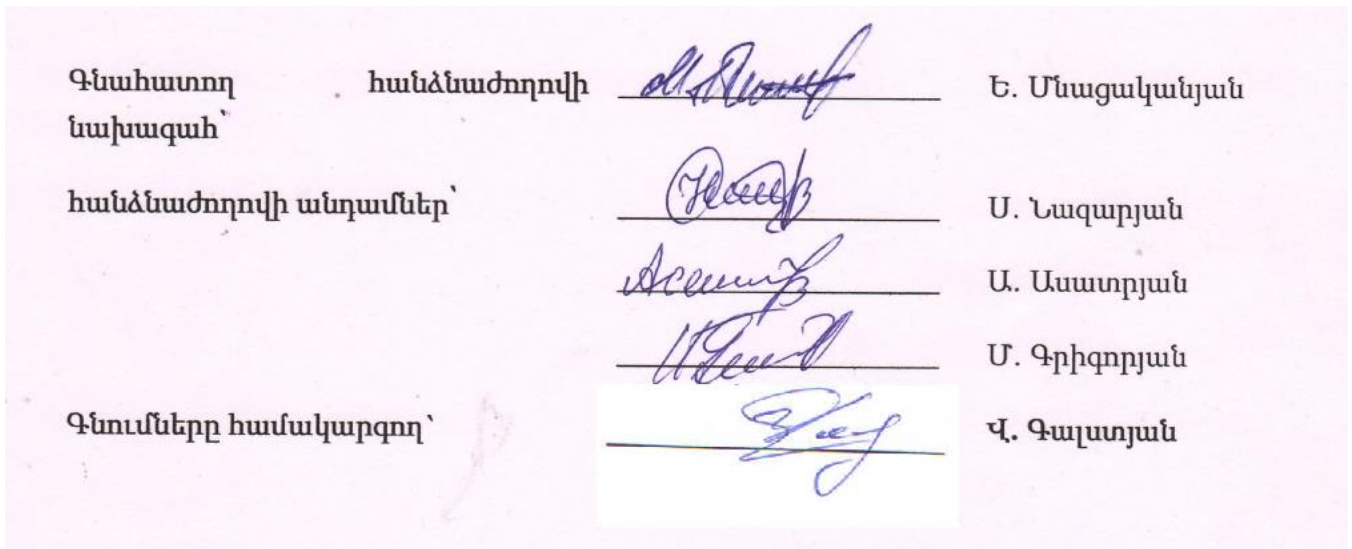 Գնահատող հանձնաժողովի Ե. Մնացականյան
նախագահ՝
հանձնաժողովի անդամներ՝ Ս. Նազարյան
Ա. Ասատրյան
Մ. Գրիգորյան
Գնումները համակարգող՝ Վ. Գալստյան